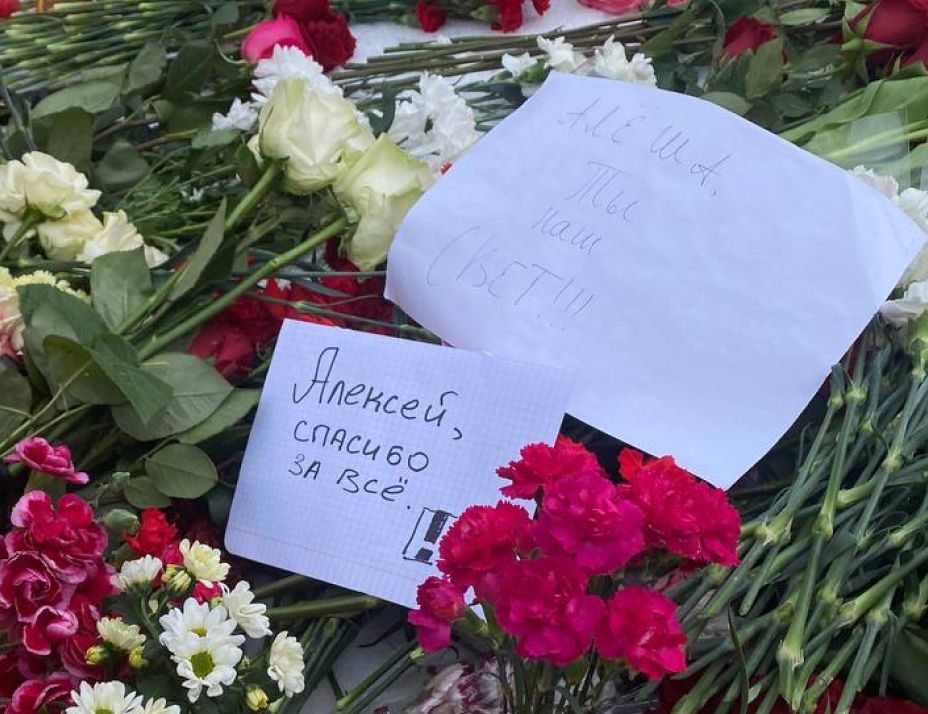 АЛЁША,
ТЫ
наш
СВЕТ!!!
Алексей,
СПАСИБО
ЗА ВСЁ.
!